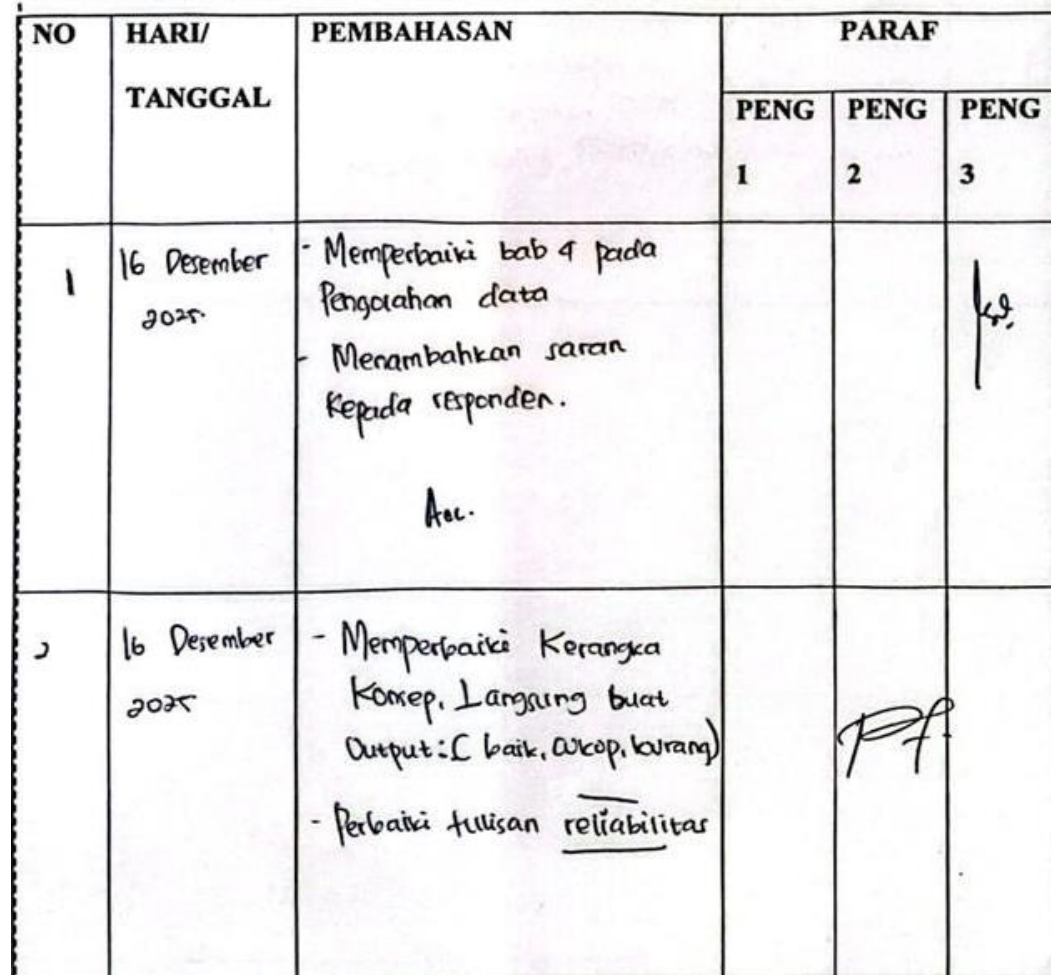 NO HARI/ PEMBAHASAN PARAF
TANGGAL
PENG PENG PENG
1 2 3
1 16 Desember - Memperbaiki bab 4 pada
2025 Pengolahan data
- Menambahkan saran
Kepada responden.
Acc.
2 16 Desember - Memperbaiki Kerangka
2025 Konsep. Langsung buat
Output: ( baik, cukup, kurang)
- Perbaiki tulisan reliabilitas